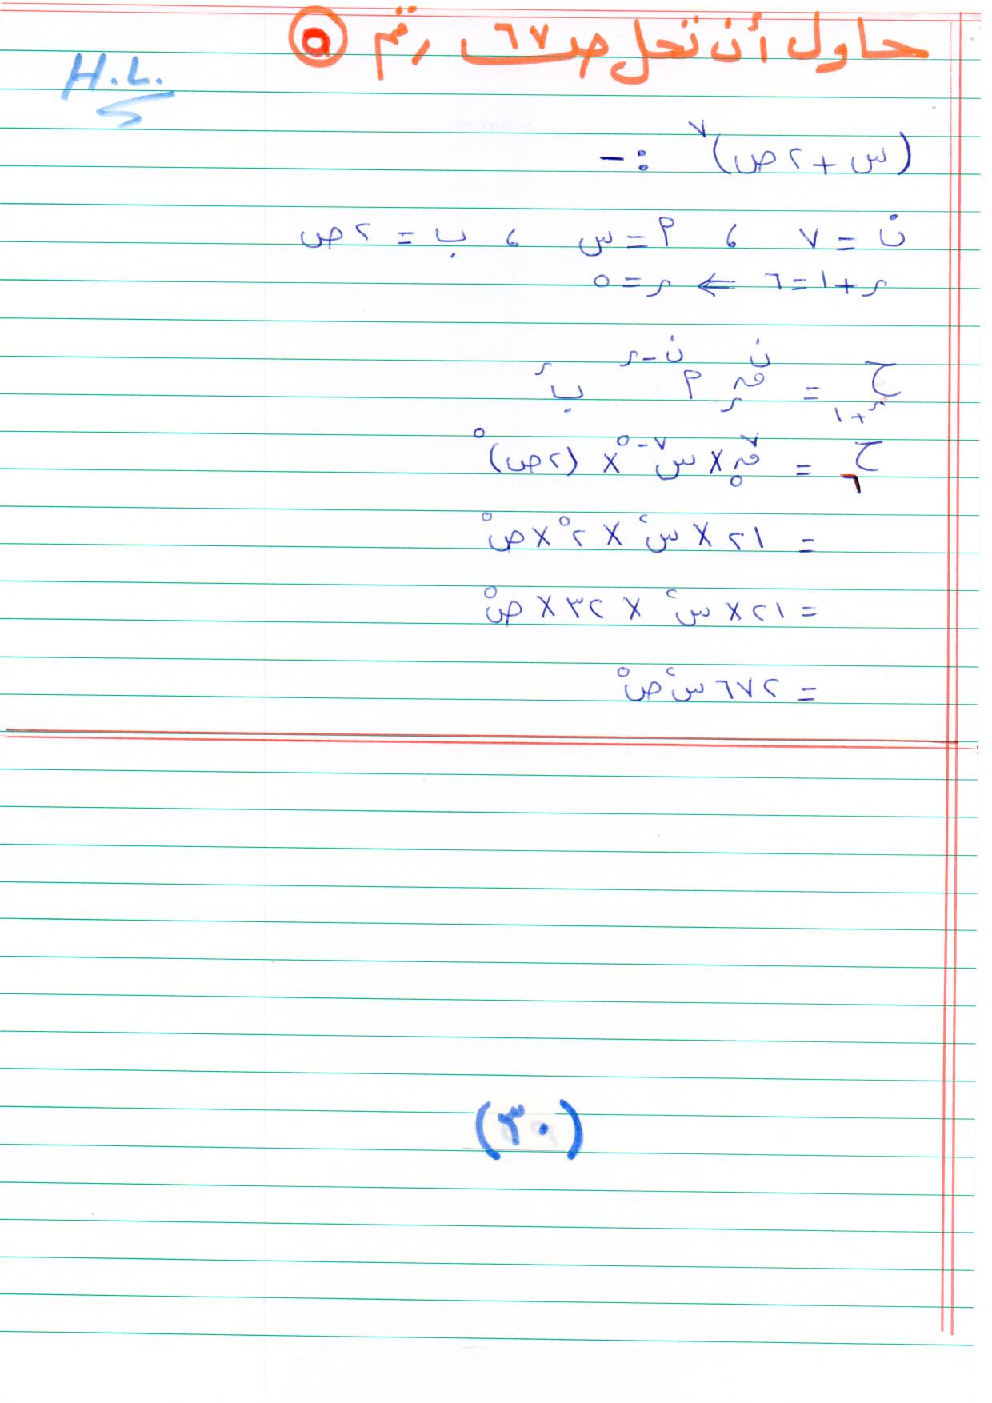 حاول أن تحل صـ ٦٧ رقم ٥
H.L.
(س + ٢ص)^٧ :-
ن = ٧ ، م = س ، ب = ٢ص
ر + ١ = ٦ ⇐ ر = ٥
ح_{ر+١} = ^نق_ر م^{ن-ر} ب^ر
ح_٦ = ^٧ق_٥ × س^{٧-٥} × (٢ص)^٥
= ٢١ × س^٢ × ٢^٥ × ص^٥
= ٢١ × س^٢ × ٣٢ × ص^٥
= ٦٧٢ س^٢ ص^٥
(٣٠)